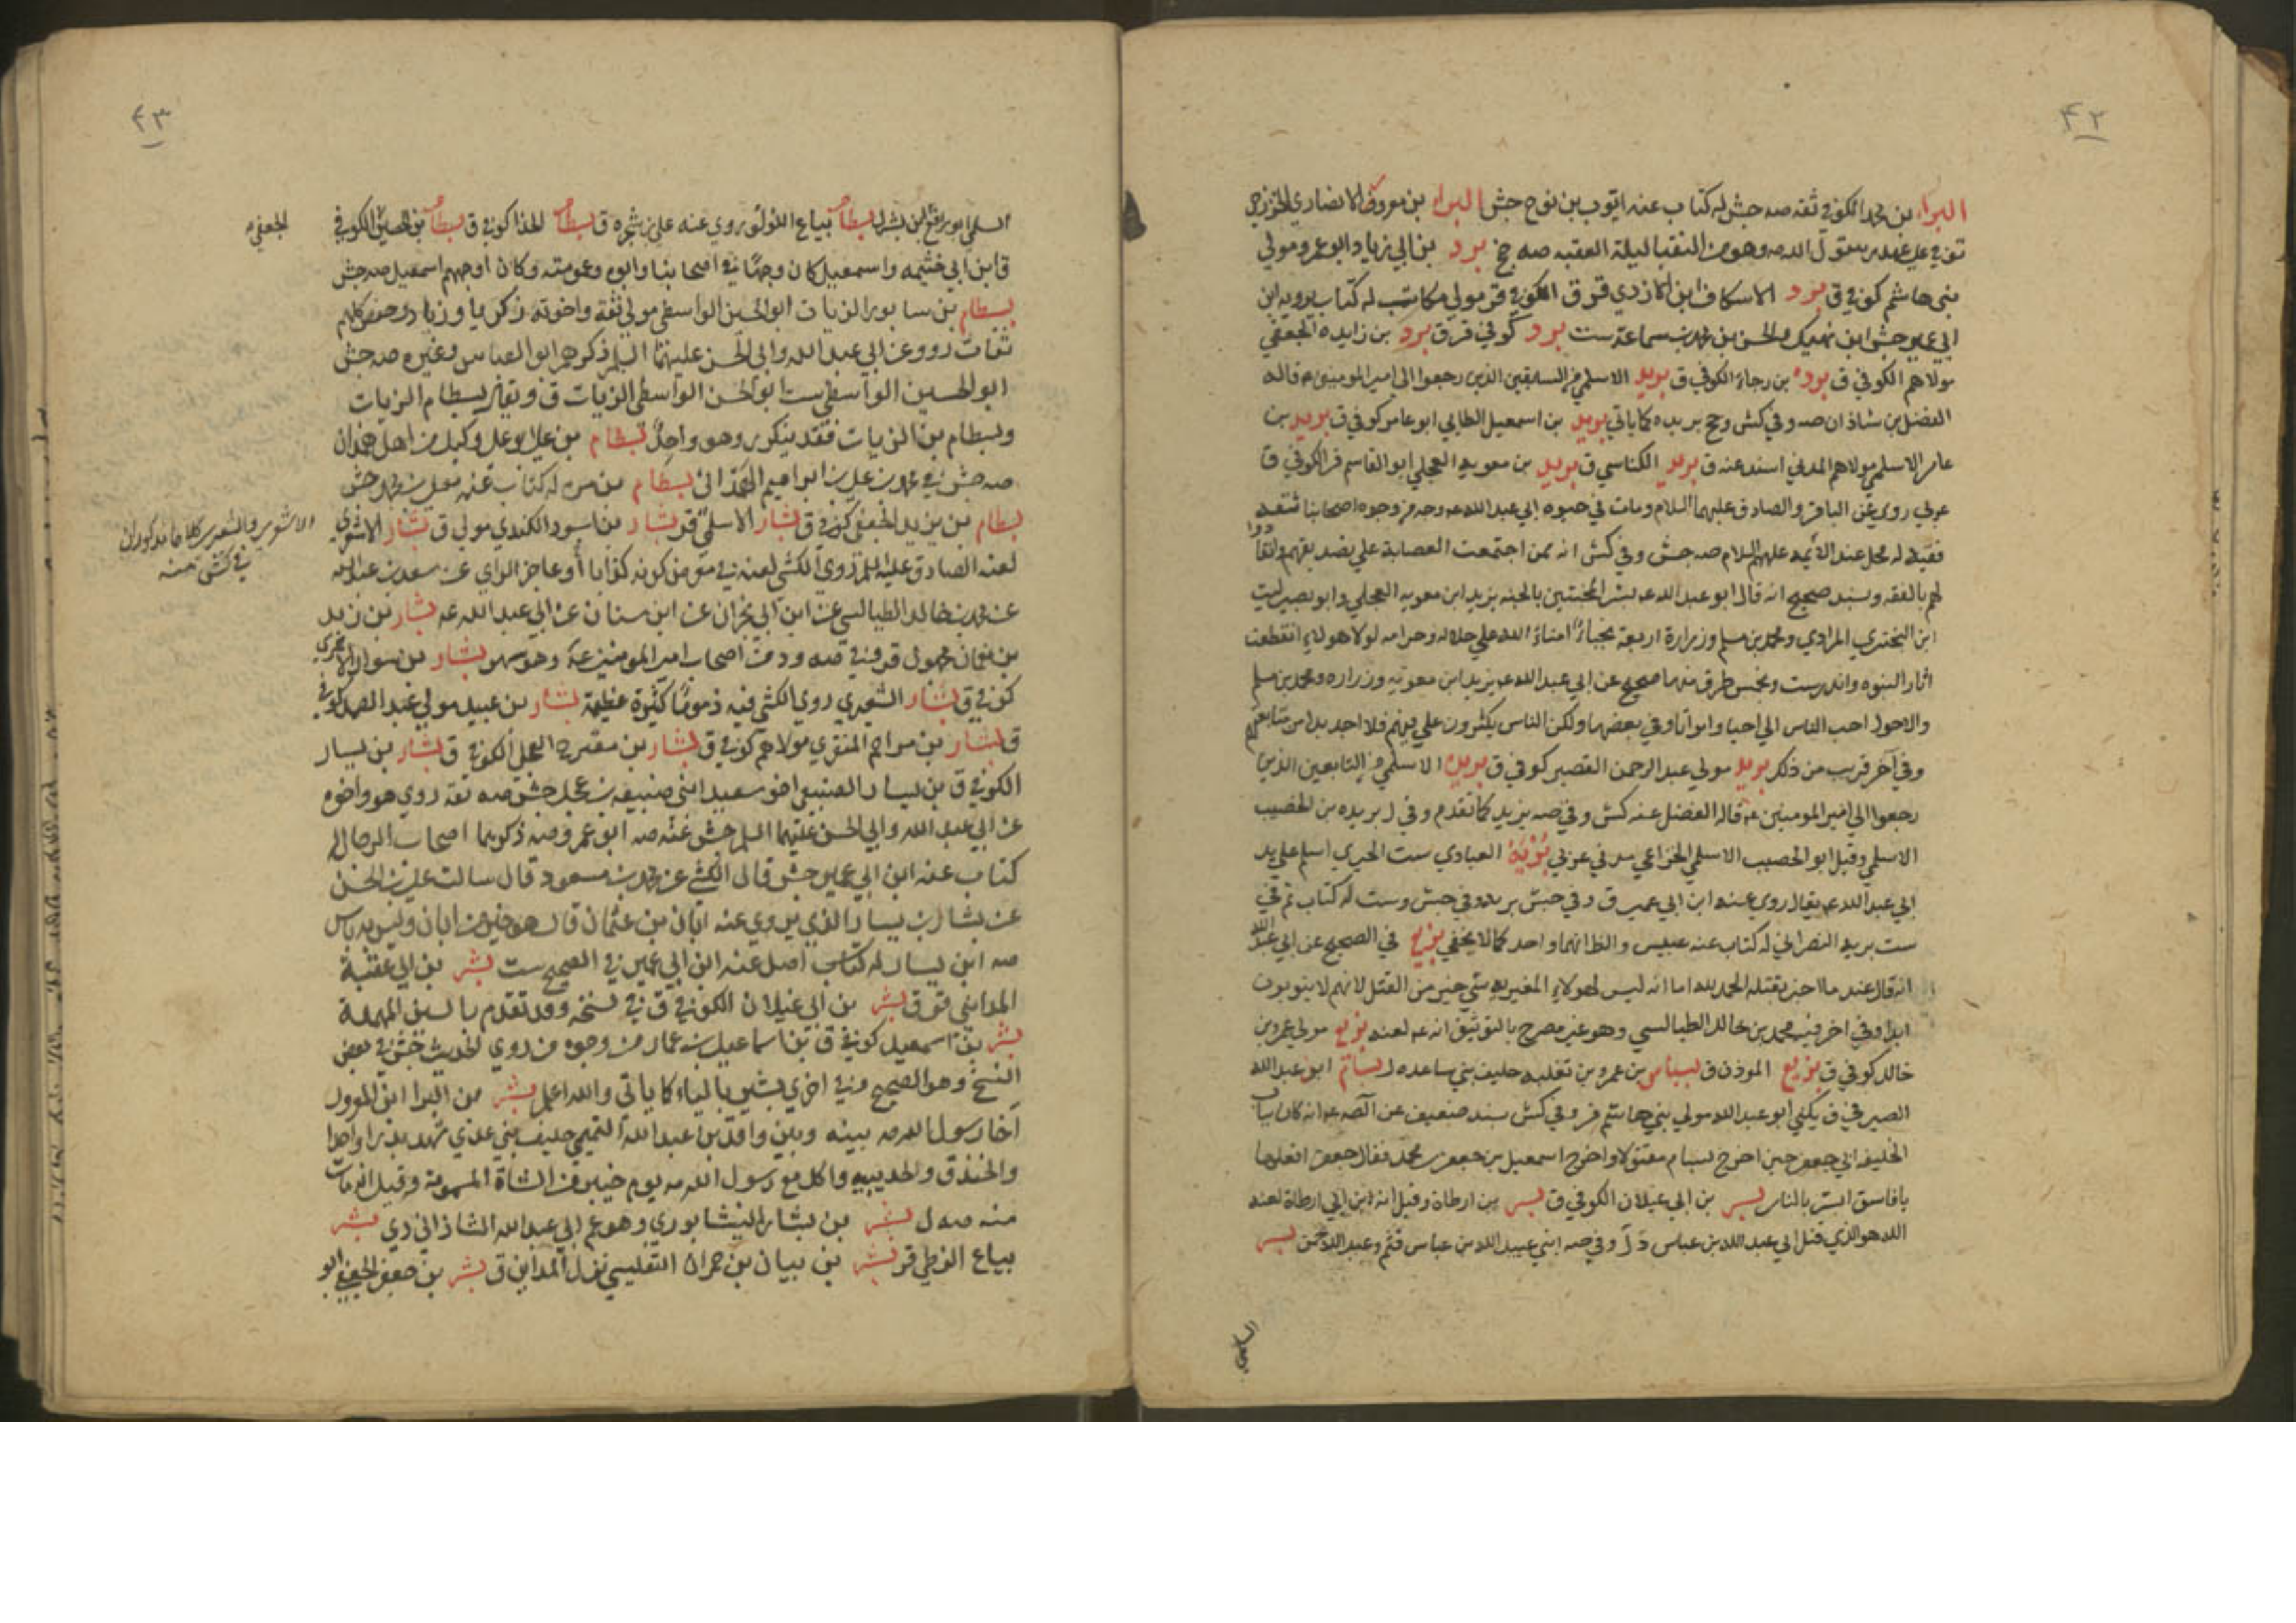 ۴۲
البراء بن محمد الكوفي ثقه صه جش له كتاب عنه ايوب بن نوح جش البراء بن معروف الانصاري الخزرجي
توفي على عهد رسول الله صه وهو من النقبا ليلة العقبه صه جخ برد بن ابي زياد ابو عمرو مولى
بني هاشم كوفي ق برد الاسكاف ابن الازدي قر ق الكوفي قر مولى مكاتب له كتاب يرويه ابن
ابي عمير جش ابن نهيك والحسن بن محمد بن سماعة ست برد كوفي قر ق برد بن زايده الجعفي
مولاهم الكوفي ق برده بن رجاء الكوفي ق بريد الاسلمي من السابقين الذين رجعوا الى امير المومنين ع قاله
الفضل بن شاذان صه وفي كش وجخ بريده كما ياتي بريد بن اسمعيل الطايي ابو عامر كوفي ق بريد بن
عامر الاسلمي مولاهم المدني اسند عنه ق بريد الكناسي ق بريد بن معويه العجلي ابو القاسم قر الكوفي ق
عربي روى عن الباقر والصادق عليهما السلام ومات في حيوة ابي عبد الله ع وجه من وجوه اصحابنا ثقه
فقيه له محل عند الأئمه عليهم السلام صه جش وفي كش انه ممن اجتمعت العصابة على تصديقهم وانقادوا
لهم بالفقه وبسند صحيح انه قال ابو عبد الله ع بشر المخبتين بالجنه بريد ابن معويه العجلي وابو بصير ليث
ابن البختري المرادي ومحمد بن مسلم وزرارة اربعة نجباء امناء الله على حلاله وحرامه لولا هولاء انقطعت
اثار النبوه واندرست وبخمس طرق منها صحيح عن ابي عبد الله ع بريد ابن معويه وزراره ومحمد بن مسلم
والاحول احب الناس الي احيا وامواتا وفي بعضها ولكن الناس يكثرون علي فيهم فلا اجد بدا من متابعتهم
وفي آخر قريب من ذلك بريد مولى عبد الرحمن القصير كوفي ق بريده الاسلمي من التابعين الذين
رجعوا الى امير المومنين ع قاله الفضل عنه كش وفي صه بريد كما تقدم وفي ل بريده بن الخصيب
الاسلمي وقيل ابو الحصيب الاسلمي الخزاعي مدني عربي بريه العبادي ست الحيري اسلم على يد
ابي عبد الله ع يقال روى عنه ابن ابي عمير ق د في جش بريه وفي جش وست له كتاب ثم في
ست بريه النصراني له كتاب عنه عبيس والظ انهما واحد كما لا يخفى بزيع في الصحيح عن ابي عبد الله
انه قال عند ما اخبر بقتله الحمد لله اما انه ليس لهولاء المغيريه شي خير من القتل لانهم لا يتوبون
ابدا وفي اخر فيه محمد بن خالد الطيالسي وهو غير مصرح بالتوثيق انه ع لعنه بزيع مولى عمرو بن
خالد كوفي ق بزيع الموذن ق بسباس بن عمرو بن ثعلبه حليف بني ساعده ل بسام ابو عبد الله
الصيرفي ق يكنى ابو عبد الله مولى بني هاشم قر وفي كش بسند ضعيف عن الصه ع انه كان بباب
الخليفه ابي جعفر حين اخرج بسام مقتولا واخرج اسمعيل بن جعفر بن محمد فقال جعفر افعلتها
يا فاسق ابشر بالنار بسر بن ابي غيلان الكوفي ق بسر بن ارطاة وقيل انه ابن ابي ارطاة لعنه
الله هو الذي قتل ابني عبد الله بن عباس د ل وفي صه ابني عبيد الله بن عباس قثم وعبد الرحمن بسر
السلمي
۴۳
السلمي ابو رافع ابن بشر ل بسطام بياع اللؤلؤ روى عنه علي بن شجره ق بسطام الحذا كوفي ق بسطام بن الحصين الكوفي
الجعفي م
ق ابن ابي خثيمه واسمعيل كان وجها في اصحابنا وابوه وعمومته وكان اوجههم اسمعيل صه جش
بسطام بن سابور الزيات ابو الحسن الواسطي مولى ثقة واخوته زكريا وزياد وحفص كلهم
ثقات رووا عن ابي عبد الله وابي الحسن عليهما السلم ذكرهم ابو العباس وغيره صه جش
ابو الحسين الواسطي ست ابو الحسن الواسطي الزيات ق ويقال بسطام الزيات
وبسطام بن الزيات فقد يتكرر وهو واحد بسطام بن علي ابو علي وكيل من اهل همدان
صه جش في محمد بن علي بن ابراهيم الهمداني بسطام بن مره له كتاب عنه معلى بن محمد جش
بسطام بن يزيد الجعفي كوفي ق بشار الاسلمي قر بشار بن اسود الكندي مولى ق بشار الاشعري
الاشعري والشعيري كلاهما مذكوران
في كش منه
لعنه الصادق عليه السلم روى الكشي لعنه في موضع كونه كذابا أو عاجز الراي عن سعد بن عبد الله
عن محمد بن خالد الطيالسي عن ابن ابي نجران عن ابن سنان عن ابي عبد الله ع بشار بن زيد
بن نعمان مجهول قر وفي صه ود من اصحاب امير المومنين ع وهو سهو بشار بن سوار الاحمري
كوفي ق بشار الشعيري روى الكشي فيه ذموما كثيرة عظيمة بشار بن عبيد مولى عبد الصمد كوفي
ق بشار بن مزاحم المنقري مولاهم كوفي ق بشار بن مقترح العجلي الكوفي ق بشار بن يسار
الكوفي ق بن يسار الضبيعي اخو سعيد ابني ضبيعه بن عجل جش صه ثقه روى هو واخوه
عن ابي عبد الله وابي الحسن عليهما السلم جش عنه صه ابو عمرو صه ذكرهما اصحاب الرجال له
كتاب عنه ابن ابي عمير جش قال الكشي عن محمد بن مسعود قال سالت علي بن الحسن
عن بشار بن يسار الذي يروي عنه ابان بن عثمان قال هو خير من ابان وليس به باس
صه ابن يسار له كتاب اصل عنه ابن ابي عمير في الصحيح ست بشر بن ابي عقبة
المدايني قر ق بشر بن ابي غيلان الكوفي ق في نسخه وقد تقدم بالسين المهملة
بشر بن اسمعيل كوفي ق بن اسماعيل بن عمار من وجوه من روى الحديث جش في بعض
النسخ وهو الصحيح وفي اخرى بشير بالياء كما ياتي والله اعلم بشر بن البرا ابن المعرور
آخا رسول الله صه بينه وبين واقد بن عبد الله التميمي حليف بني عدي شهد بدرا واحدا
والخندق والحديبيه واكل مع رسول الله صه يوم خيبر من الشاة المسمومة وقيل انه مات
منه صه ل بشر بن بشار النيشابوري وهو عم ابي عبد الله الشاذاني دي بشر
بياع الزطي قر بشر بن بيان بن حمران التفليسي نزل المداين ق بشر بن جعفر الجعفي ابو